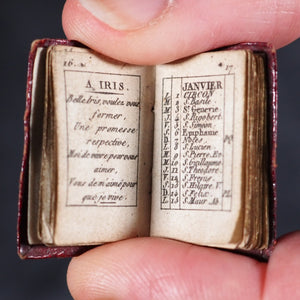 16.
A IRIS.
Belle Iris, voulez vous
former,
Une promesse
respective,
Moi de vivre pour vous
aimer,
Vous de m'aimer pour
que je vive.
17
JANVIER
L. 1 CIRCON
M. 2 S. Basile
M. 3 Ste Genevie
J. 4 S. Rigobert
V. 5 S. Simeon
S. 6 Epiphanie
D. 7 Noces
L. 8 S. Lucien
M. 9 S. Pierre Ev
M. 10 S. Guillaume
J. 11 S. Theodore
V. 12
S. 13 S. Hilaire V.
D. 14 S. Felix
L. 15 S. Maur Ab